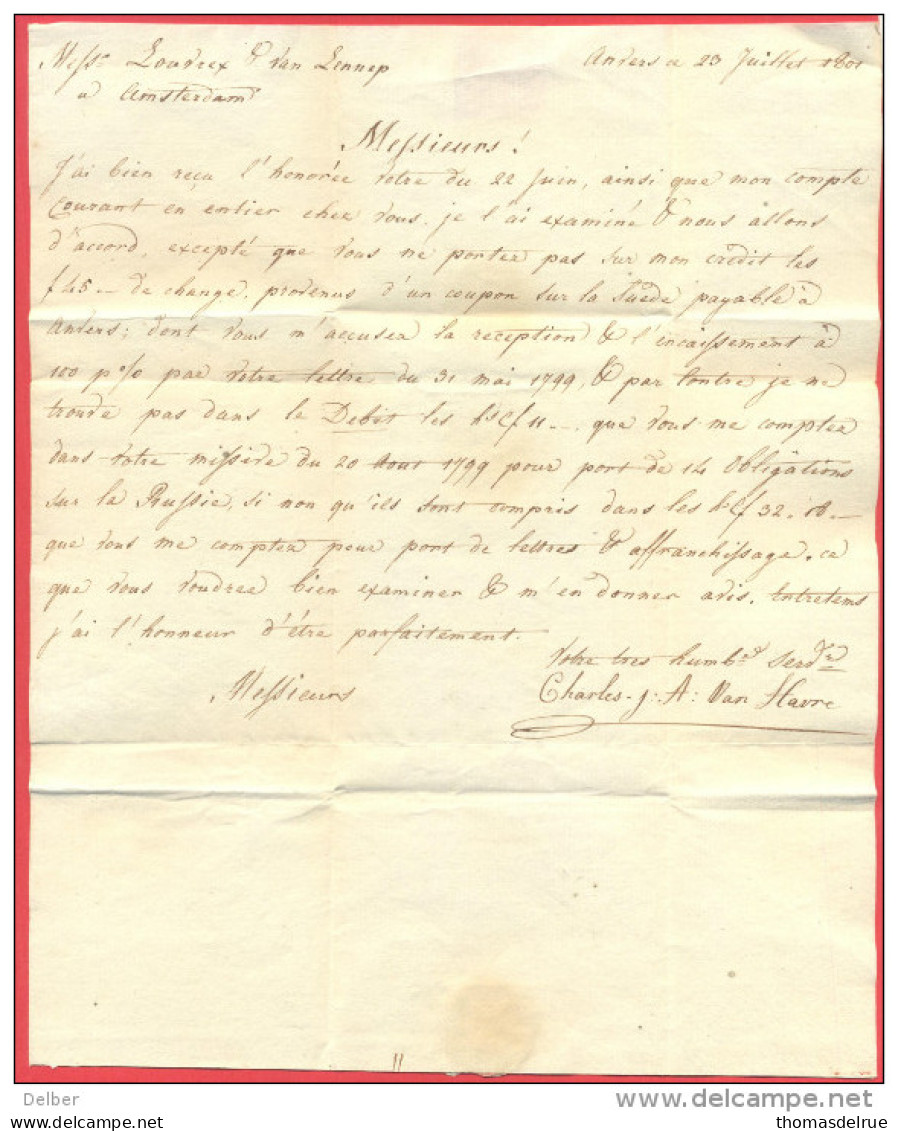 Mess.rs Louvrex & Van Lennep
Anvers ce 23 Juillet 1801
a Amsterdam
Messieurs!
J'ai bien reçu l'honorée votre du 22 Juin, ainsi que mon compte
Courant en entier chez vous, je l'ai examiné & nous allons
d'accord, excepté que vous ne portez pas sur mon crédit les
f 45.- de change, provenus d'un coupon sur la Suède payable à
Anvers; dont vous m'accusez la reception & l'incaissement à
100 p% par votre lettre du 31 mai 1799, & par contre je ne
trouve pas dans le Debit les f 11.-. que vous me comptez
dans votre missive du 20 Aout 1799 pour port de 14 Obligations
sur la Russie, si non qu'ils sont compris dans les f 32.10.-
que vous me comptez pour port de lettres & affranchissage, ce
que vous voudrez bien examiner & m'en donner avis. Entretems
j'ai l'honneur d'être parfaitement.
Messieurs
Votre tres humb.e serv.r
Charles. j: A: Van Havre
Delber
www.delcampe.net
thomasdelrue